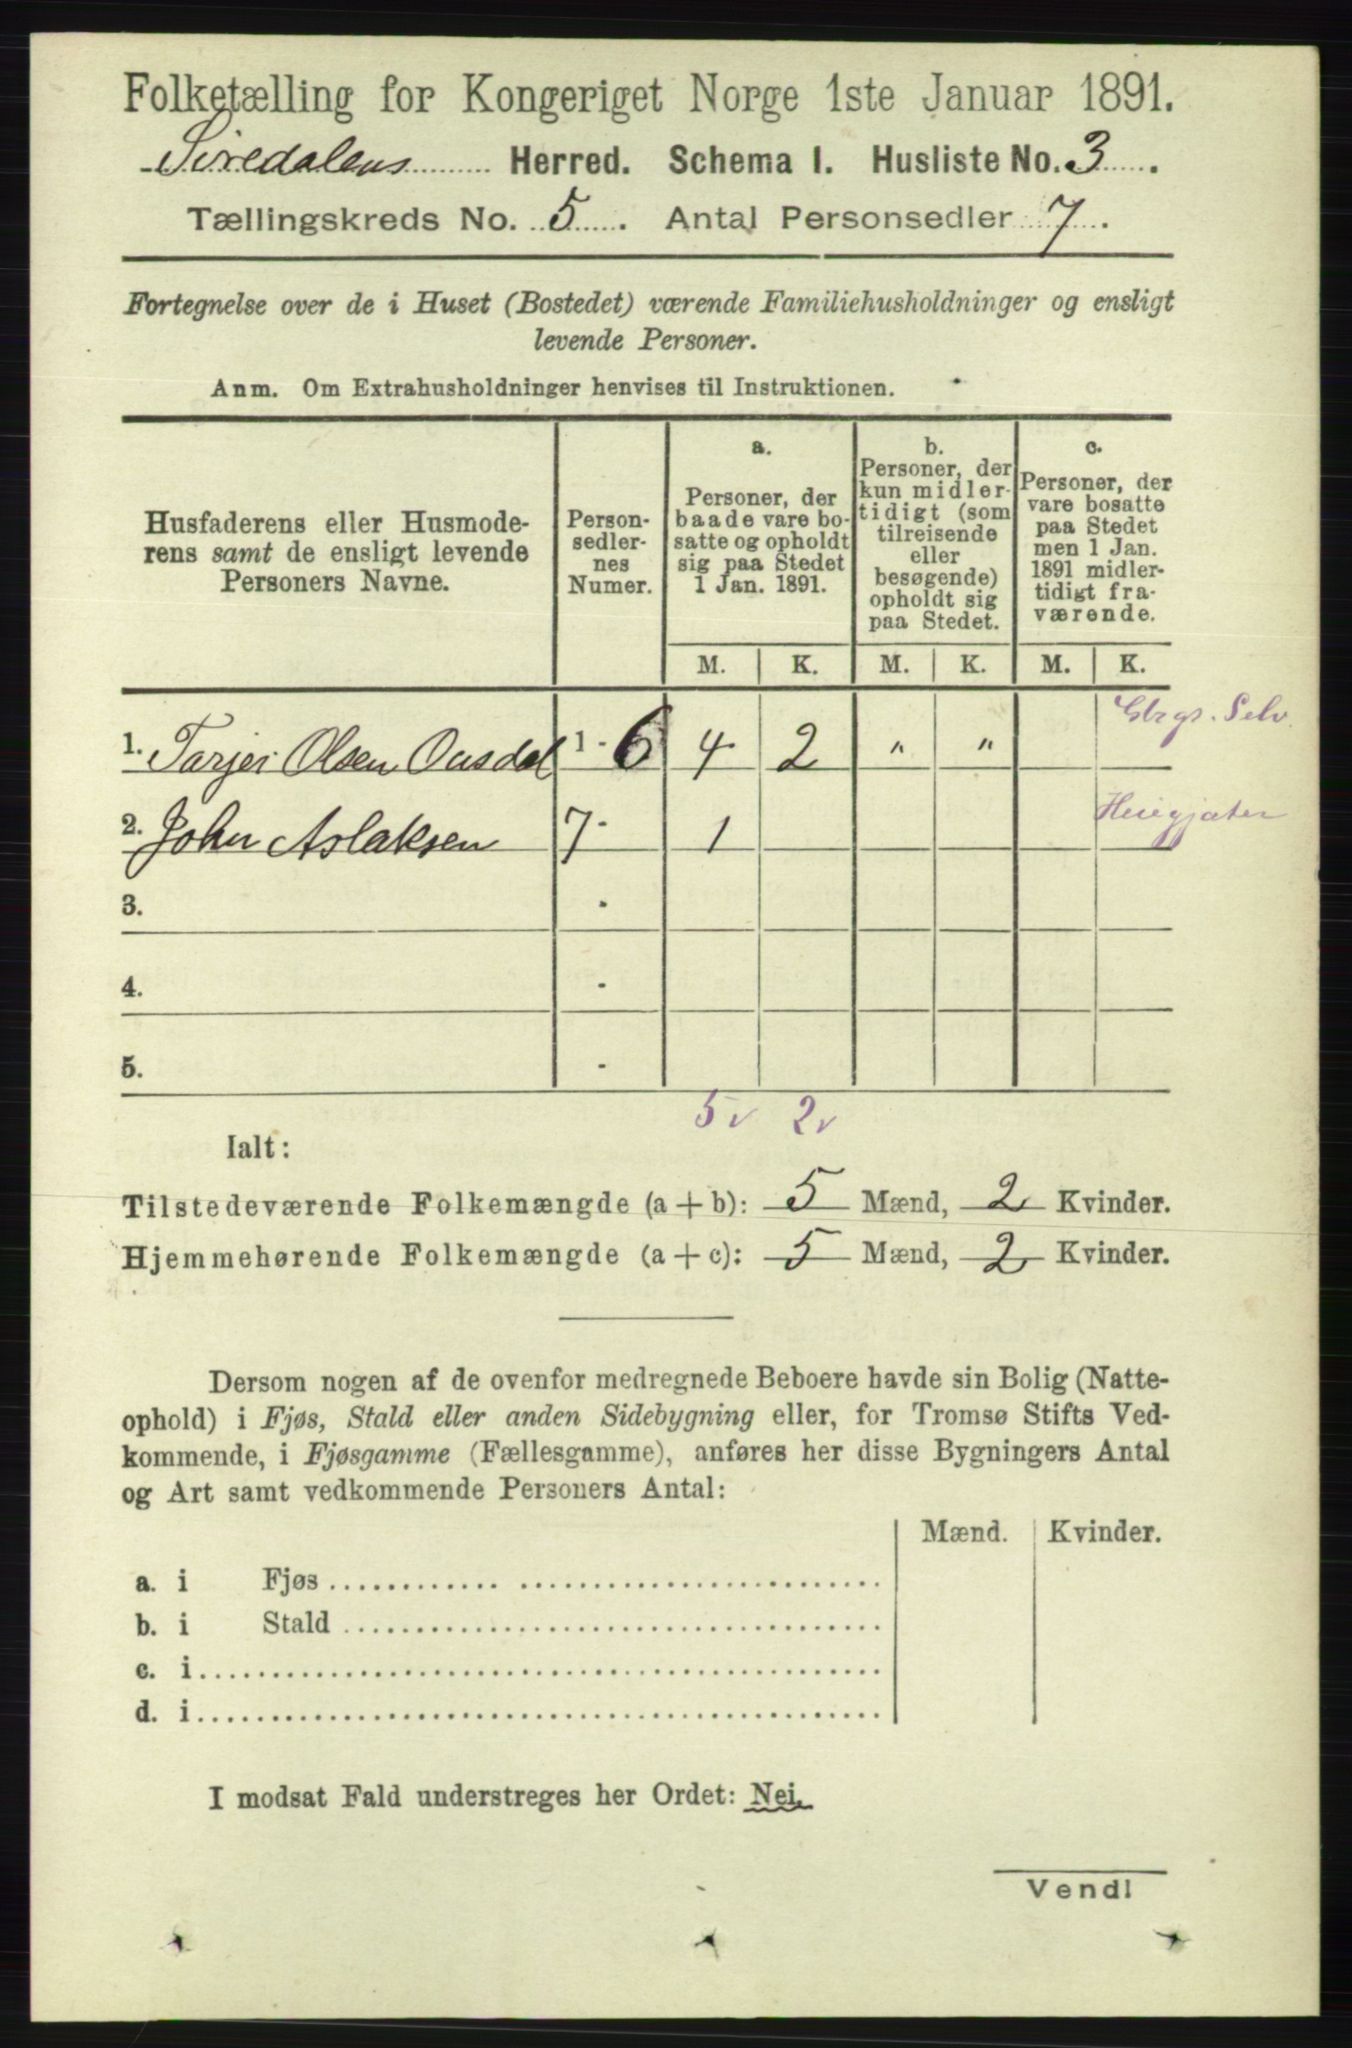 Folketælling for Kongeriget Norge 1ste Januar 1891.
Siredalens Herred. Schema I. Husliste No. 3.
Tællingskreds No. 5. Antal Personsedler 7.
Fortegnelse over de i Huset (Bostedet) værende Familiehusholdninger og ensligt
levende Personer.
Anm. Om Extrahusholdninger henvises til Instruktionen.
Husfaderens eller Husmode-
rens samt de ensligt levende
Personers Navne.
Person-
sedler-
nes
Numer.
a.
Personer, der
baade vare bo-
satte og opholdt
sig paa Stedet
1 Jan. 1891.
b.
Personer, der
kun midler-
tidigt (som
tilreisende
eller
besøgende)
opholdt sig
paa Stedet.
c.
Personer, der
vare bosatte
paa Stedet
men 1 Jan.
1891 midler-
tidigt fra-
værende.
M. K. M. K. M. K.
Gbrgr. Selv.
1. Tarjei Olsen Ousdal 1 - 6 4 2 " "
2. John Aslaksen 7 - 1
3. -
4. -
5. -
5 v 2 v
Ialt:
Tilstedeværende Folkemængde (a + b): 5 Mænd, 2 Kvinder.
Hjemmehørende Folkemængde (a + c): 5 Mænd, 2 Kvinder.
Dersom nogen af de ovenfor medregnede Beboere havde sin Bolig (Natte-
ophold) i Fjøs, Stald eller anden Sidebygning eller, for Tromsø Stifts Ved-
kommende, i Fjøsgamme (Fællesgamme), anføres her disse Bygningers Antal
og Art samt vedkommende Personers Antal:
Mænd. Kvinder.
a. i Fjøs
b. i Stald
c. i
d. i
I modsat Fald understreges her Ordet: Nei.
Vend!